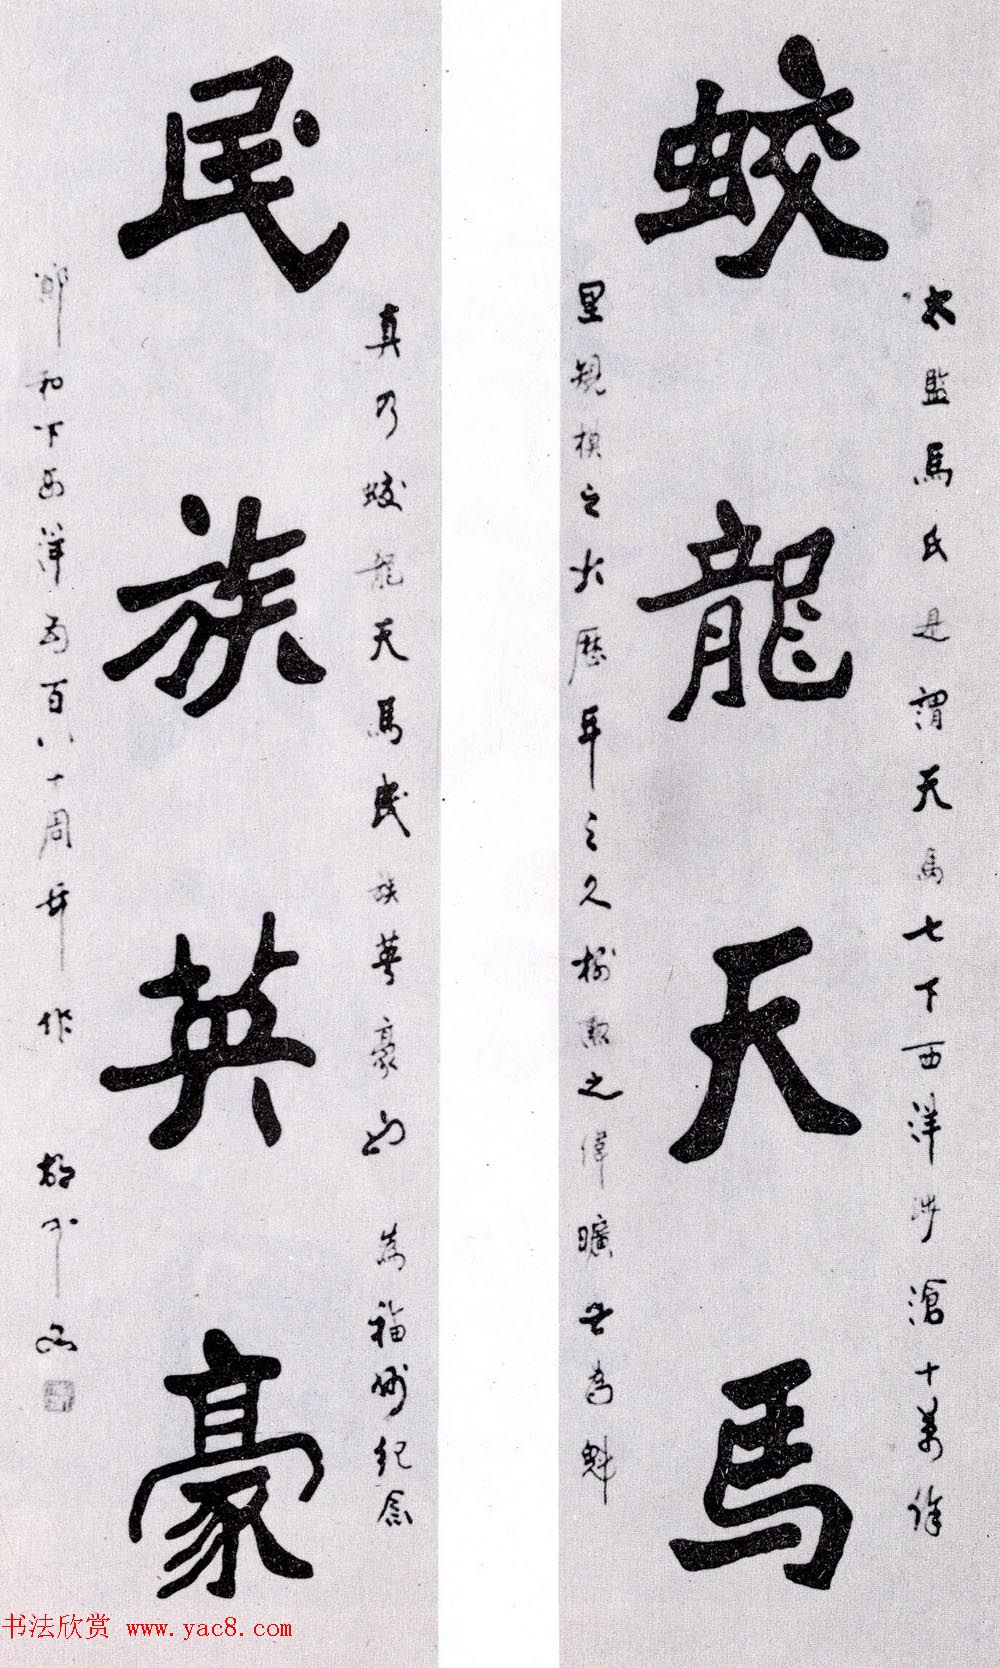 蛟龍天馬
太監馬氏是謂天馬七下西洋涉滄十萬餘
里規模之大歷年之久樹勳之偉曠世為魁
民族英豪
真乃蛟龍天馬民族英豪也 為福州紀念
鄭和下西洋五百八十周年作
书法欣赏 www.yac8.com